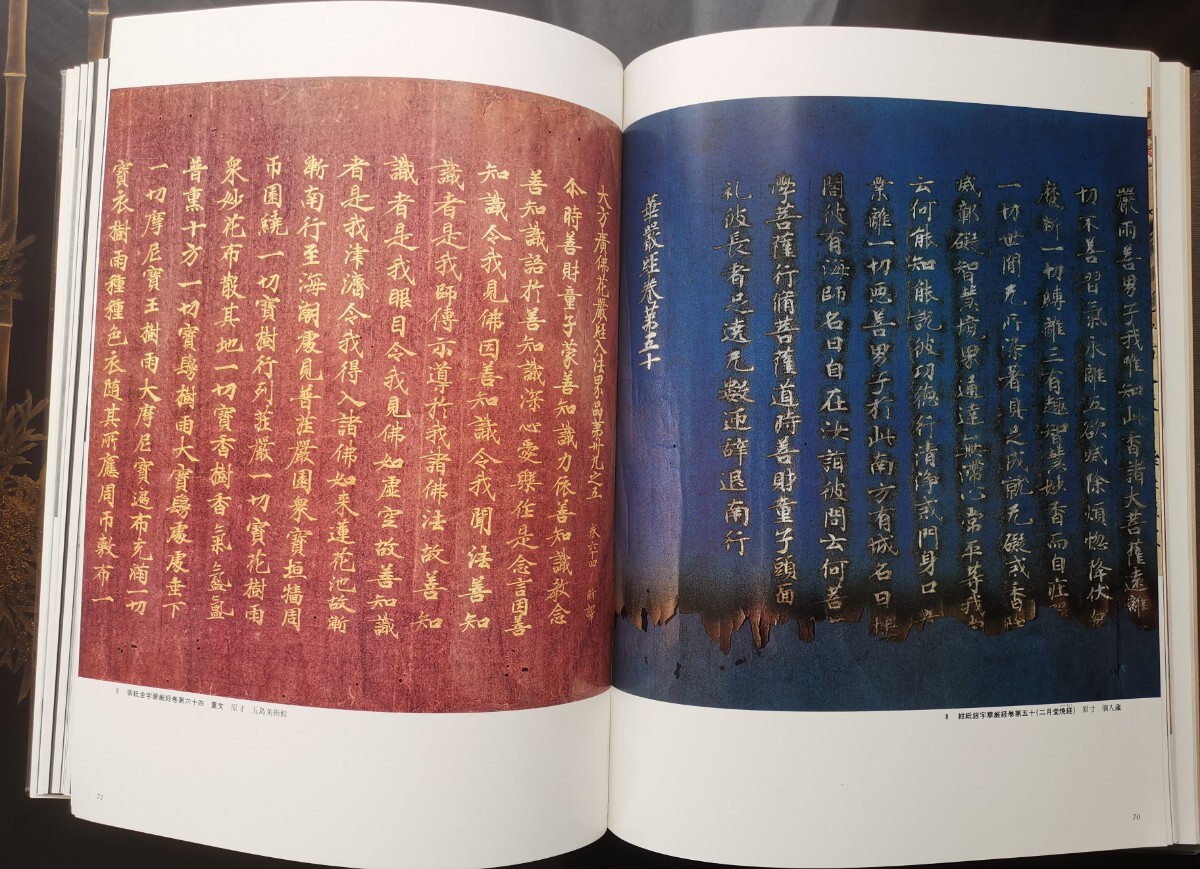 嚴雨善男子我唯知此香諸大菩薩遠離
切不善習氣永離五欲滅除煩惚降伏
魔斷一切轉離三有趣智慧妙香而自莊
一切世閒无所染著具足成就无礙戒香
威彰礙智慧境界通達無㵸心常平等我
云何能知能說彼功德行清淨戒門身口
業離一切惡善男子於此南方有城名曰樓
閣彼有海師名曰自在汝詣彼問云何菩
學菩薩行脩菩薩道時善財童子頭面
礼彼長者足遶无數迊辝退南行
華嚴経卷第五十
8 紺紙銀字華厳経巻第五十(二月堂焼経) 原寸 個人蔵
70
大方廣佛花嚴経入法界品第卅九之五 卷六十四 新譯
尒時善財童子蒙善知識力依善知識教念
善知識語於善知識深心愛樂作是念言因善
知識令我見佛因善知識令我聞法善知
識者是我師傅示導於我諸佛法故善知
識者是我眼目令我見佛如虛空故善知識
者是我津濟令我得入諸佛如来蓮花池故漸
漸南行至海潮處見普莊嚴園衆寶垣牆周
帀圍繞一切寶樹行列莊嚴一切寶花樹雨
衆妙花布散其地一切寶香樹香氣氤氳
普熏十方一切寶鬘樹雨大寶鬘處處垂下
一切摩尼寶王樹雨大摩尼寶遍布充滿一切
寶衣樹雨種種色衣随其所應周帀敷布一
9 紫紙金字華厳経巻第六十四 重文 原寸 五島美術館
71